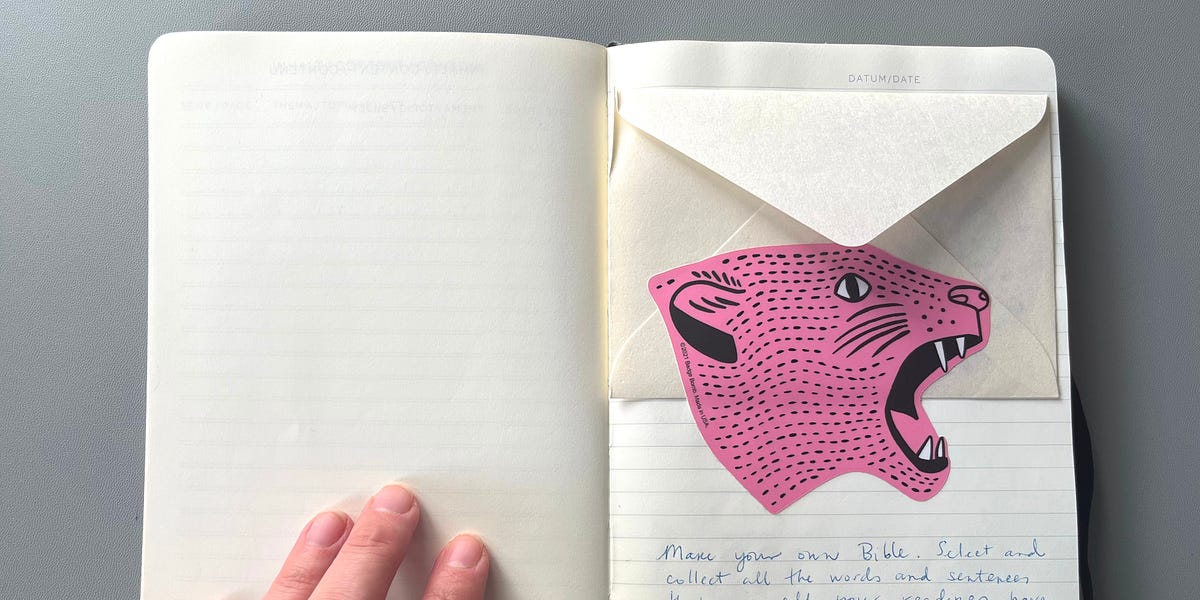 DATUM/DATE
©2021 Badge Bomb. Made in USA.
Make your own Bible. Select and
collect all the words and sentences
all your readings have